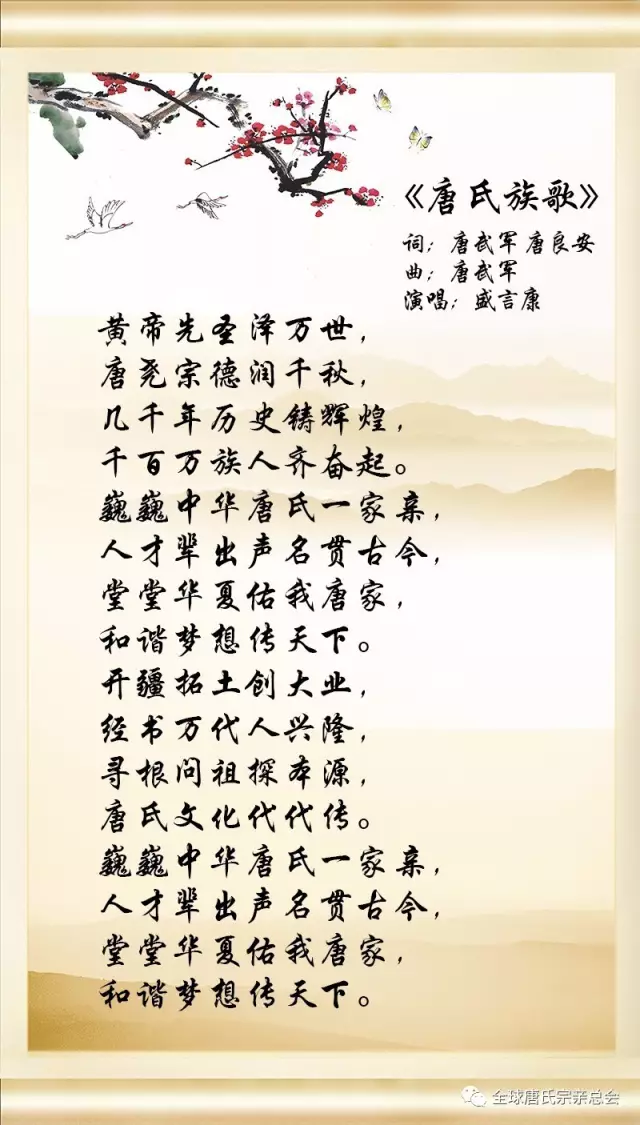 《唐氏族歌》
词：唐武军 唐良安
曲：唐武军
演唱：盛言康
黄帝先圣泽万世，
唐尧宗德润千秋，
几千年历史铸辉煌，
千百万族人齐奋起。
巍巍中华唐氏一家亲，
人才辈出声名贯古今，
堂堂华夏佑我唐家，
和谐梦想传天下。
开疆拓土创大业，
经书万代人兴隆，
寻根问祖探本源，
唐氏文化代代传。
巍巍中华唐氏一家亲，
人才辈出声名贯古今，
堂堂华夏佑我唐家，
和谐梦想传天下。
全球唐氏宗亲总会